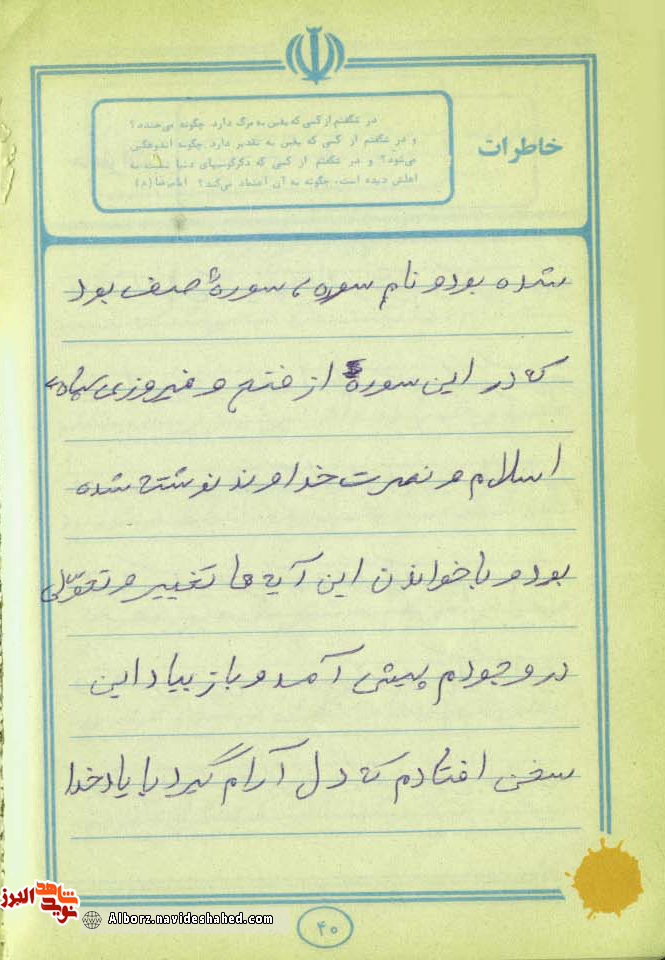 خاطرات
در شگفتم از کسی که یقین به مرگ دارد. چگونه می‌خندد؟
و در شگفتم از کسی که یقین به تقدیر دارد. چگونه اندوهگین
می‌شود؟ و در شگفتم از کسی که دگرگونیهای دنیا نسبت به
اهلش دیده است، چگونه به آن اعتماد می‌کند؟ امام رضا (ع)
شده بود و نام سوره، سورهٔ صف بود
که در این سوره از فتح و فیروزی سپاه
اسلام و نصرت خداوند نوشته شده
بود و با خواندن این آیه ها تغییر و تحوّلی
در وجودم پیش آمد و باز بیاد این
سخن افتادم که دل آرام گیرد با یاد خدا
نوید شاهد البرز
Alborz.navideshahed.com
۴۰